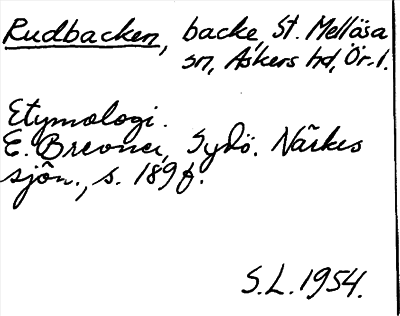 Rudbacken, backe, St. Mellösa
sn, Askers hd, Ör. l.
Etymologi.
E. Brevner, Sydö. Närkes
sjön., s. 189 f.
S.L. 1954.